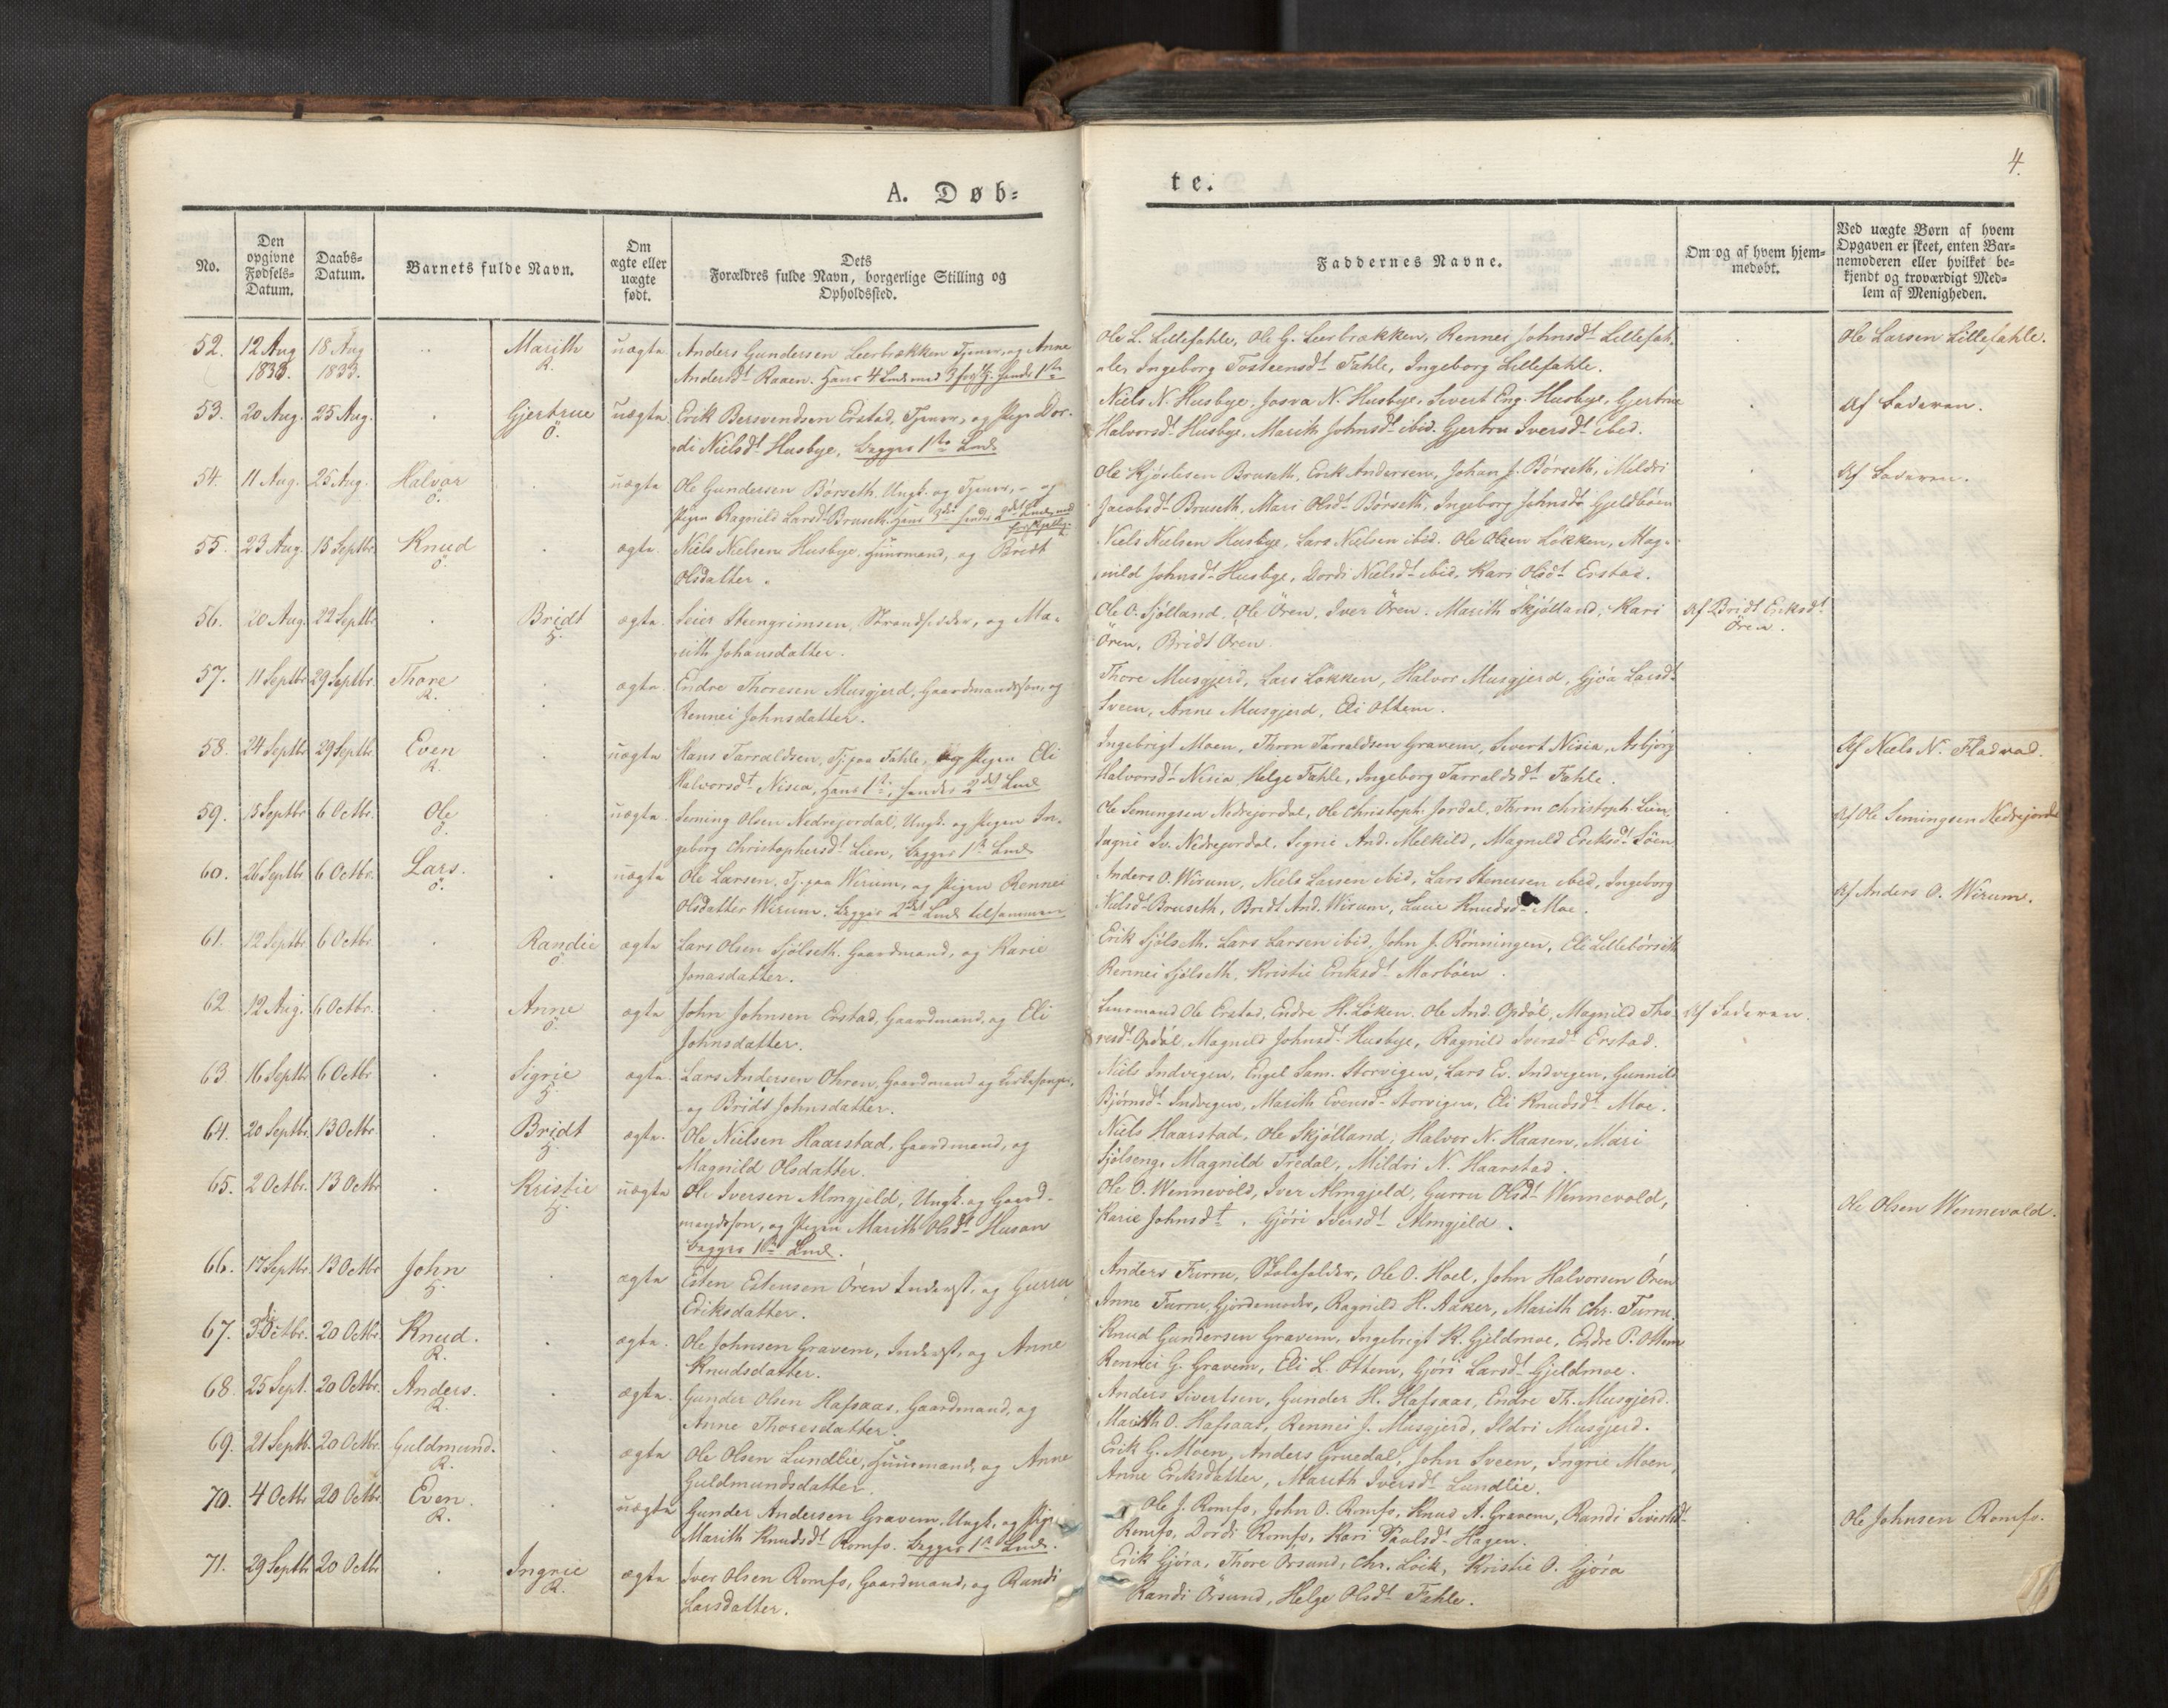 4.
A. Døb-
te.
No.
Den opgivne Fødsels-Datum.
Daabs-Datum.
Barnets fulde Navn.
Om ægte eller uægte født.
Dets Forældres fulde Navn, borgerlige Stilling og Opholdssted.
Faddernes Navne.
Om og af hvem hjemmedøbt.
Ved uægte Børn af hvem Opgaven er skeet, enten Barnemoderen eller hvilket bekjendt og troværdigt Medlem af Menigheden.
52. 12 Aug 1833. 18 Aug 1833. Marith R. uægte
Anders Gundersen Leerbrækken Tjener, og Anne
Andersdt Raaen. Hans 4 Leierm. med 3 hendes 1ste
Ole L. Lillefahle, Ole G. Leerbrækken, Rennei Johnsdt Lillefah-
le, Ingeborg Tosteensdt Fahle, Ingeborg Lillefahle.
Ole Larsen Lillefahle.
53. 20 Aug. 25 Aug. Gjertrue Ö. uægte
Erik Bersvendsen Erstad, Tjener, og Pige Dor-
di Nielsdt Husbye, begges 1ste Leierm.
Niels N. Husbye, Josva N. Husbye, Sivert Eng. Husbye, Gjertrue
Halvorsdt Husbye, Marith Johnsdt ibid. Gjertru Iversdt ibid.
Af Faderen.
54. 11 Aug. 25 Aug. Halvor Ö. uægte
Ole Gundersen Börseth, Ungk. og Tjener, og
Pigen Ragnild Larsdt Bruseth. Hans 3die hendes 2det
Ole Skjöstesen Bruseth, Erik Andersen, Johan J. Börseth, Mildri
Jacobsdt Bruseth, Mari Olsdt Börseth, Ingeborg Johnsdt Gjeldböen
Af Faderen.
55. 23 Aug. 15 Septbr. Knud Ö. ægte.
Niels Nielsen Husbye, Huusmand, og Bridt
Olsdatter.
Niels Nielsen Husbye, Lars Nielsen ibid. Ole Olsen Lökken, Mag-
nild Johnsdt Husbye, Dordi Nielsdt ibid, Kari Olsdt Erstad.
56. 20 Aug. 22 Septbr. Bridt H. ægte.
Seier Steengrimsen, Strandsidder, og Ma-
rith Johansdatter.
Ole O. Sjölland, Ole Ören, Iver Ören, Marith Skjölland, Kari
Ören, Bridt Ören.
Af Bridt Eriksdt
Ören.
57. 11 Septbr 29 Septbr. Thore R. ægte.
Endre Thoresen Musgjerd, Gaardmandssön, og
Rennei Johnsdatter.
Thore Musgjerd, Lars Lökken, Halvor Musgjerd, Gjöa Larsdt
Sveen, Anne Musgjerd, Eli Ottem.
58. 24 Septbr 29 Septbr. Even R. uægte
Hans Tarraldsen, Tj. paa Fahle, og Pigen Eli
Halvorsdt Nisia, Hans 1ste, hendes 2det Leierm.
Ingebrigt Moen, Thron Tarraldsen Gravem, Sivert Nisia, Asbjörg
Halvorsdt Nisia, Helge Fahle, Ingeborg Tarraldsdt Fahle.
Af Niels N. Fladvad.
59. 15 Septbr 6 Octbr. Ole Ö. uægte.
Seming Olsen Nedrejordal, Ungk. og Pigen In-
geborg Christophersdt Lien, begges 1ste Leierm.
Ole Semingsen Nedrejordal, Ole Christoph. Jordal, Thron Christoph. Lien,
Ingrie Iv. Nedrejordal, Sigrie And. Melkild, Magnild Eriksdt Löen
Af Ole Semingsen Nedrejordal
60. 26 Septbr 6 Octbr. Lars. Ö. uægte
Ole Larsen, Tj. paa Wirum, og Pigen Rennei
Olsdatter Wirum. begges 2det Leierm. tilsammen
Anders O. Wirum, Niels Larsen ibid, Lars Stenersen ibid, Ingeborg
Nielsd Bruseth, Bridt And. Wirum, Lucie Knudsdt Moe.
Af Anders O. Wirum.
61. 12 Septbr 6 Octbr. Randie Ö. ægte
Lars Olsen Sjölseth. Gaardmand, og Karie
Jonasdatter.
Erik Sjölseth. Lars Larsen ibid. John J. Rönningen, Eli Lillebörseth
Rennei Sjölseth, Kristie Eriksdt Morböen.
62 12 Aug. 6 Octbr. Anne Ö. ægte
John Johnsen Erstad, Gaardmand, og Eli
Johnsdatter.
Leensmand Ole Erstad, Endre H. Löken. Ole And. Opdöl, Magnild Tho-
resdt Opdöl, Magnild Johnsd Husbye, Ragnild Iversdt Erstad.
Af Faderen.
63. 16 Septbr 6 Octbr Sigrie H. ægte.
Lars Andersen Ohren, Gaardmand og Kirkesanger,
og Bridt Johnsdatter.
Niels Indvigen, Engel Sam. Storvigen, Lars Ev. Indvigen, Gunnild
Björnsdt Indvigen, Marith Evensd Storvigen, Eli Knudsdt Moe.
64. 20 Septbr. 13 Octbr. Bridt H. ægte.
Ole Nielsen Haarstad, Gaardmand, og
Magnild Olsdatter.
Niels Haarstad, Ole Skjölland, Halvor N. Haasen, Mari
Sjölseng, Magnild Tredal, Mildri N. Haarstad.
65. 2 Octbr. 13 Octbr Kristie H. uægte
Ole Iversen Almgjeld, Ungk. og Gaard-
mandssön, og Pigen Marith Olsdt Husan
begges 1ste Leierm.
Ole O. Wennevold, Iver Almgjeld, Gurru Olsdt Wennevold,
Karie Johnsdt, Gjöri Iversdt Almgjeld.
Ole Olsen Wennevold.
66. 17 Septbr. 13 Octbr John H. ægte
Esten Estensen Ören Inderst, og Gurru
Eriksdatter.
Anders Furru, Skoleholder, Ole O. Hoel, John Halvorsen Ören
Anne Furru, Gjordemoder, Ragnild H. Aaker, Marith Chr. Furru.
67. 3die Octbr. 20 Octbr. Knud. R. ægte.
Ole Johnsen Gravem, Inderst, og Anne
Knudsdatter.
Knud Gundersen Gravem, Ingebrigt K. Gjeldmoe, Endre P. Ottem
Rennei G. Gravem, Eli L. Ottem, Gjöri Larsdt Gjeldmoe.
68. 25 Sept. 20 Octbr. Anders. R. ægte.
Gunder Olsen Hafsaas, Gaardmand, og
Anne Thoresdatter.
Anders Sivertsen, Gunder H. Hafsaas, Endre Th. Musgjerd.
Marith O. Hafsaas, Rennei J. Musgjerd, Ildri Musgjerd.
69. 21 Septb. 20 Octbr. Guldmund. R. ægte
Ole Olsen Lundlie, Huusmand, og Anne
Guldmundsdatter.
Erik G. Moen, Anders Gruedal, John Sveen, Ingrie Moen,
Anne Eriksdatter, Marith Iversdt Lundlie.
70. 4 Octbr 20 Octbr. Even. R. uægte
Gunder Andersen Gravem, Ungk. og Pige
Marith Knudsdt Romfo. begges 1ste Leierm.
Ole J. Romfo, John O. Romfo, Knud A. Gravem, Randi Sivertsdt
Romfo, Dordi Romfo, Kari Paalsdt Hagen.
Ole Johnsen Romfo.
71. 29 Septbr 20 Octbr Ingrie R. ægte
Iver Olsen Romfo, Gaardmand, og Randi
Larsdatter.
Erik Gjöra, Thore Orsund, Chr. Loik, Kristie O. Gjöra
Randi Örsund, Helge Olsdt Fahle.